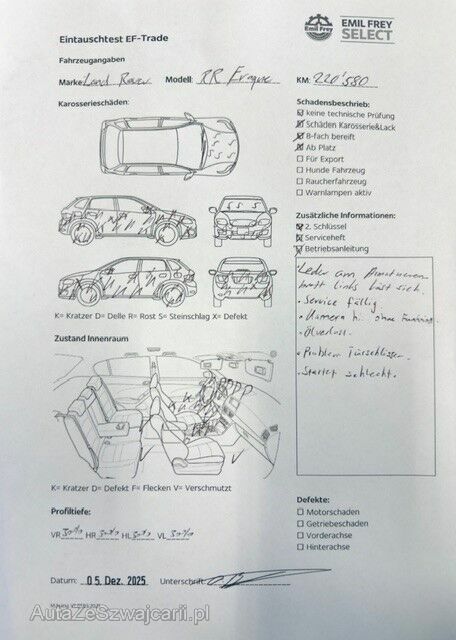 EMIL FREY
SELECT
Emil Frey
Eintauschtest EF-Trade
Fahrzeugangaben
Marke: Land Rover Modell: RR Evoque KM: 220'580
Karosserieschäden:
Schadensbeschrieb:
keine technische Prüfung
Schäden Karosserie&Lack
8-fach bereift
Ab Platz
Für Export
Hunde Fahrzeug
Raucherfahrzeug
Warnlampen aktiv
Zusätzliche Informationen:
2. Schlüssel
Serviceheft
Betriebsanleitung
K= Kratzer D= Delle R= Rost S= Steinschlag X= Defekt
Leder am Armaturen
brett links löst sich.
• Service fällig.
• Kamera hi. ohne
• Ölverlust.
• Problem Türschlösser.
• Startet schlecht.
Zustand Innenraum
K= Kratzer D= Defekt F= Flecken V= Verschmutzt
Profiltiefe:
VR 30% HR 30% HL 30% VL 30%
Defekte:
Motorschaden
Getriebeschaden
Vorderachse
Hinterachse
Datum: 05. Dez. 2025 Unterschrift:
AutaZeSzwajcarii.pl